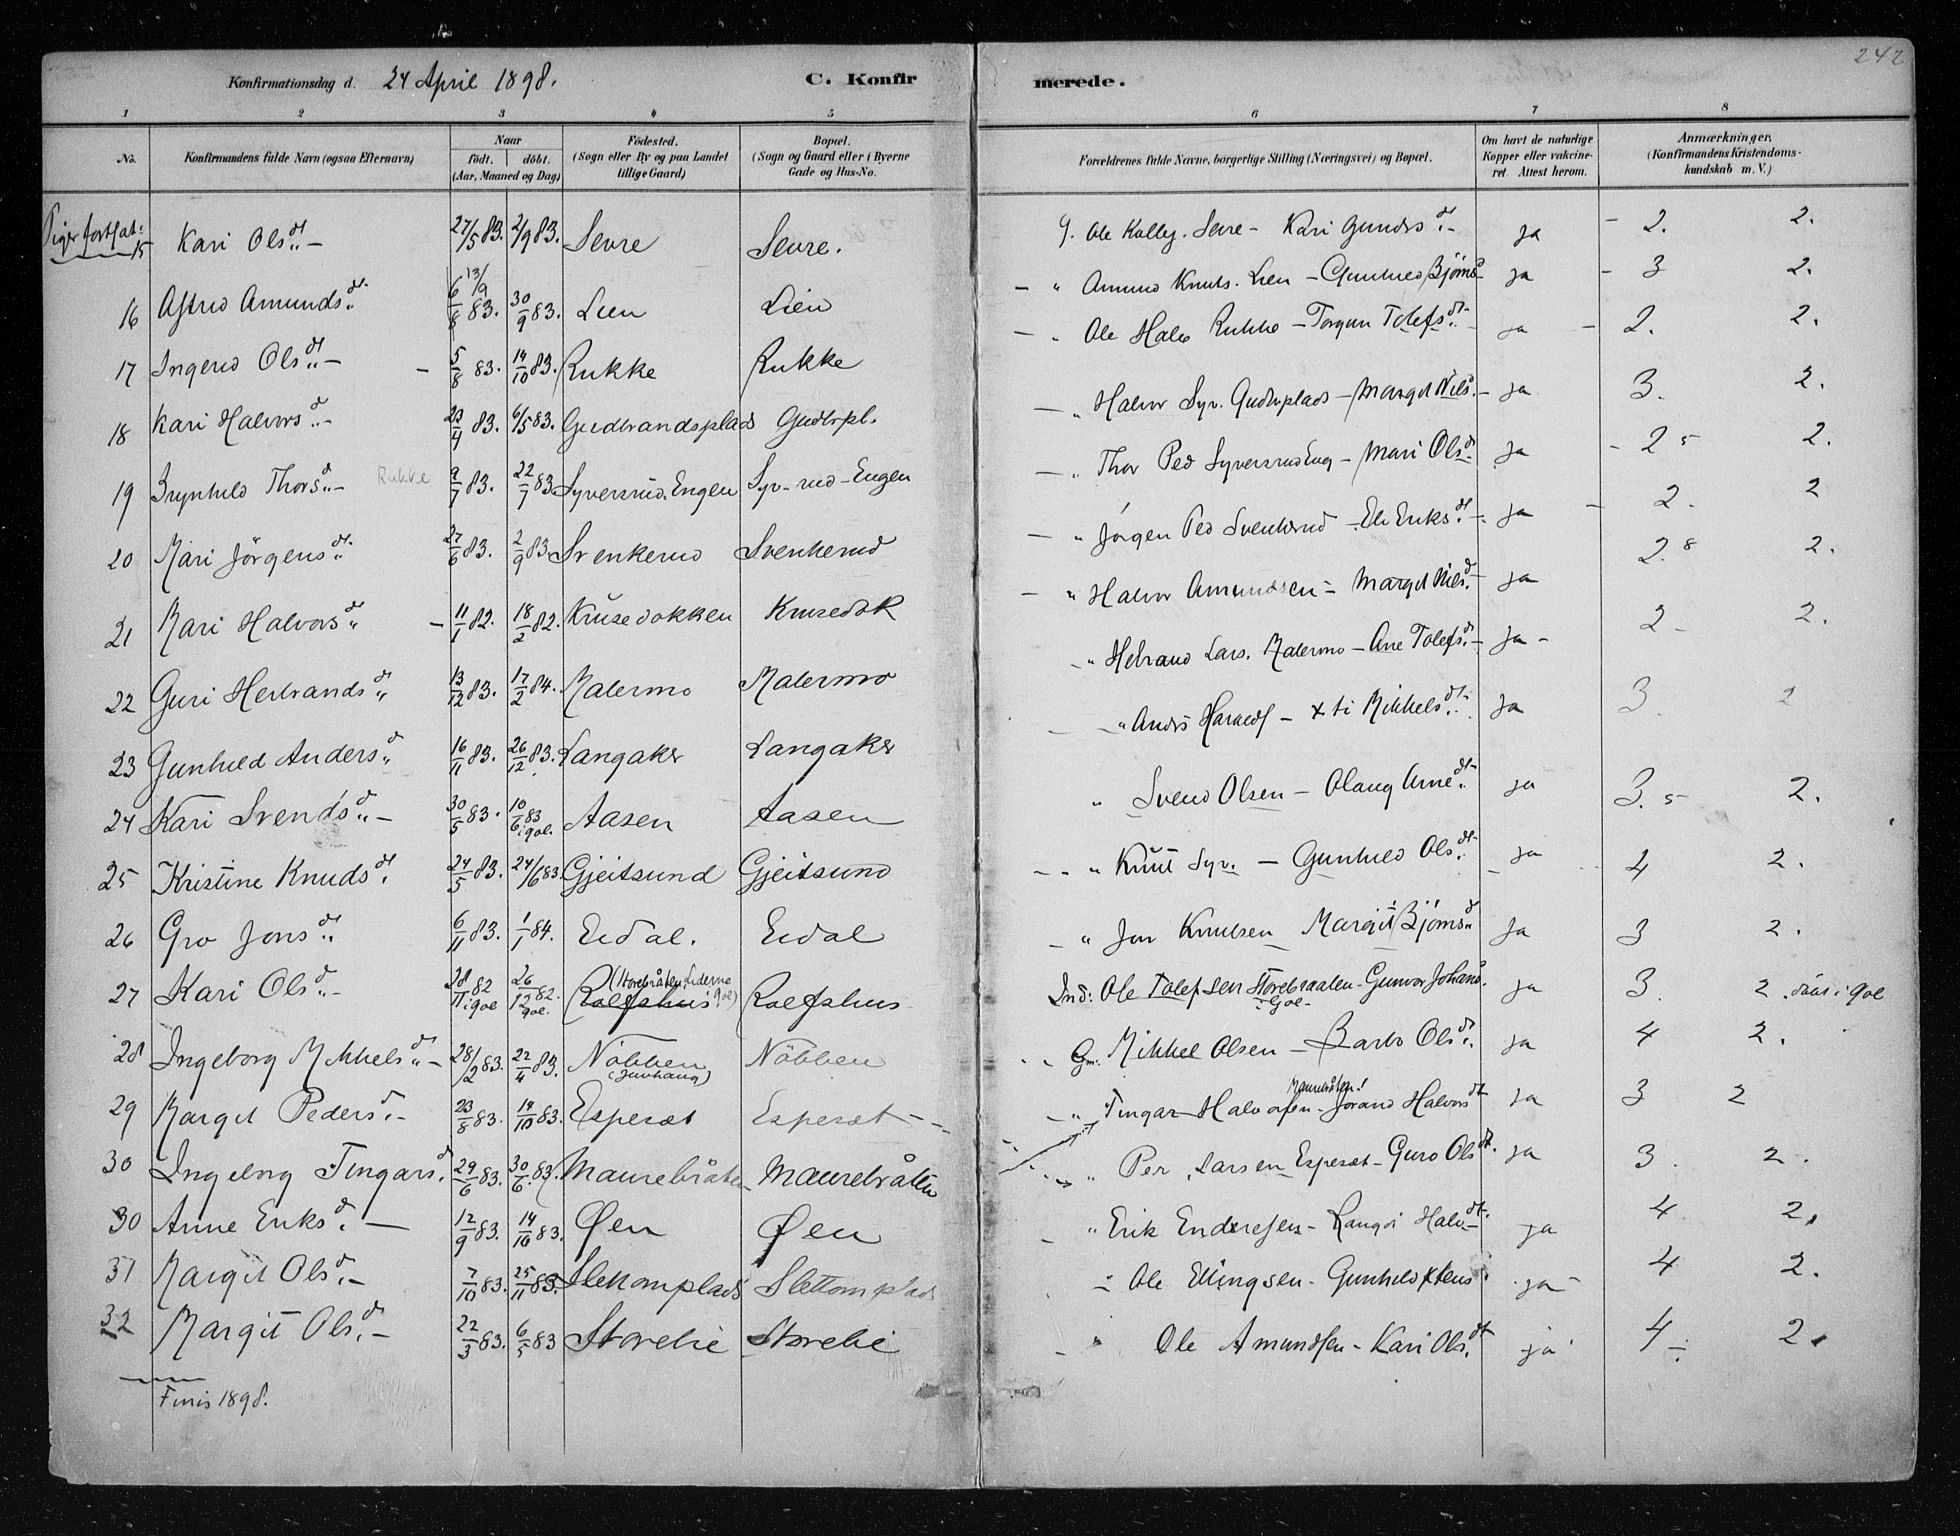 242
Konfirmationsdag d. 24 April 1898. C. Konfirmerede.
1 2 3 4 5 6 7 8
No. Konfirmandens fulde Navn (ogsaa Efternavn) Naar födt. döbt. (Aar, Maaned og Dag) Födested. (Sogn eller By og paa Landet tillige Gaard) Bopæl. (Sogn og Gaard eller i Byerne Gade og Hus-No. Forældrenes fulde Navne, borgerlige Stilling (Næringsvei) og Bopæl. Om havt de naturlige Kopper eller vakcineret. Attest herom. Anmærkninger. (Konfirmandens Kristendomskundskab m. V.)
Piger fortsat:
15 Kari Olsd. – 27/5 83. 2/9 83. Sevre Sevre. G. Ole Kolby. Sevre – Kari Gundsd. – ja – 2. 2.
13/9
16 Astrid Amundsdt. 6/8 83. 30/9 83. Lien Lien – " Amund Knuts. Lien – Gunhild Bjørnsd – ja – 3 2.
17 Ingerid Olsdt – – 5/8 83. 14/10 83. Rukke Rukke – " Ole Halv Rukke – Torgun Tolefsdt. – ja – 2. 2.
18 Kari Halvorsd. – 23/4 83. 6/5 83. Gudbrandsplads Gudbrpl. – " Halvor Syv. Gudbrplads – Margit Nilsd. – ja 3. 2.
19 Brynhild Thorsd. – Rukke 9/7 83. 22/7 83 Syversrud. Engen Syv-rud – Engen – " Thor Ped Syversrud Eng – Mari Olsd. ja – 2 5 2.
20 Mari Jörgensdt. 27/6 83. 2/9 83 Svenkerud Svenkerud – " Jörgen Ped Svenkerud – Eli Eriksdt. – ja – 2. 2
21 Mari Halvorsd. – 11/1 82. 18/2 82. Krusedokken Krusedok – " Halvor Amundsen – Margit Nilsd. – ja 2. 8 2.
22 Guri Herbrandsd. 13/12 83. 17/2 84. Malermo Malermo – " Hebrand Lars. Malermo – Ane Tolefsd. – ja – 2 – 2.
23 Gunhild Andersd. 16/11 83. 26/12 83. Langaker Langaker – – " Andrs – xti Mikkelsdt. ja 3. 2
24 Kari Svendsd. – 30/5 83. 10/6 83 i gol. Aasen Aasen " Svend Olsen – Olaug Arnedt. ja 3. 5 2.
25 Kristine Knudsdt. 24/5 83. 24/6 83. Gjeitsund Gjeitsund – – " Knut Syv. – Gunhild Olsdt. – ja – 4 2.
26 Gro Jonsdt. 6/11 83. 1/1 84. Eidal. Eidal – " Jon Knutsen Margit Bjørnsd. ja 3 2.
27 Kari Olsd. – 28/11 82 i gol 26/12 82. gol. (Storebråten, Liderne gol) Rolfshus Rolfshus Ind: Ole Tolefsen Storebraaten – Gunvor Johansd. i Gol – ja 3. 2. döbt i gol
28 Ingeborg Mikkelsd. – 28/2 83. 22/4 83. Nöbben Nöbben Gm. Mikkel Olsen – Barbo Olsdt. ja 4 2.
29 Margit Pedersd. – 23/8 83. 14/10 83. Esperset Esperset – – – " Tingar Halvorsen – Maurebråten! Jörand Halvorsdt ja 3 2
30 Ingeborg Tingarsd. 29/6 83. 30/6. 83. Maurebråten Maurebråten " Per Larsen Esperset – Guro Olsdt. ja 3. 2.
30 Anne Eriksd. – 12/9 83. 14/10 83. Øen Øen – " Erik Endresen – Rangdi Halvdt. ja 4 2.
31 Margit Olsd. – 7/10 83. 25/11 83. Slettomplads Slettomplads " Ole Ellingsen – Gunhild Xtens . ja – 4 2.
32 Margit Olsd. – 22/3 83. 6/5 83 Storelie Storelie – " Ole Amundsen – Kari Olsdt. ja 4 – 2.
Finis 1898.